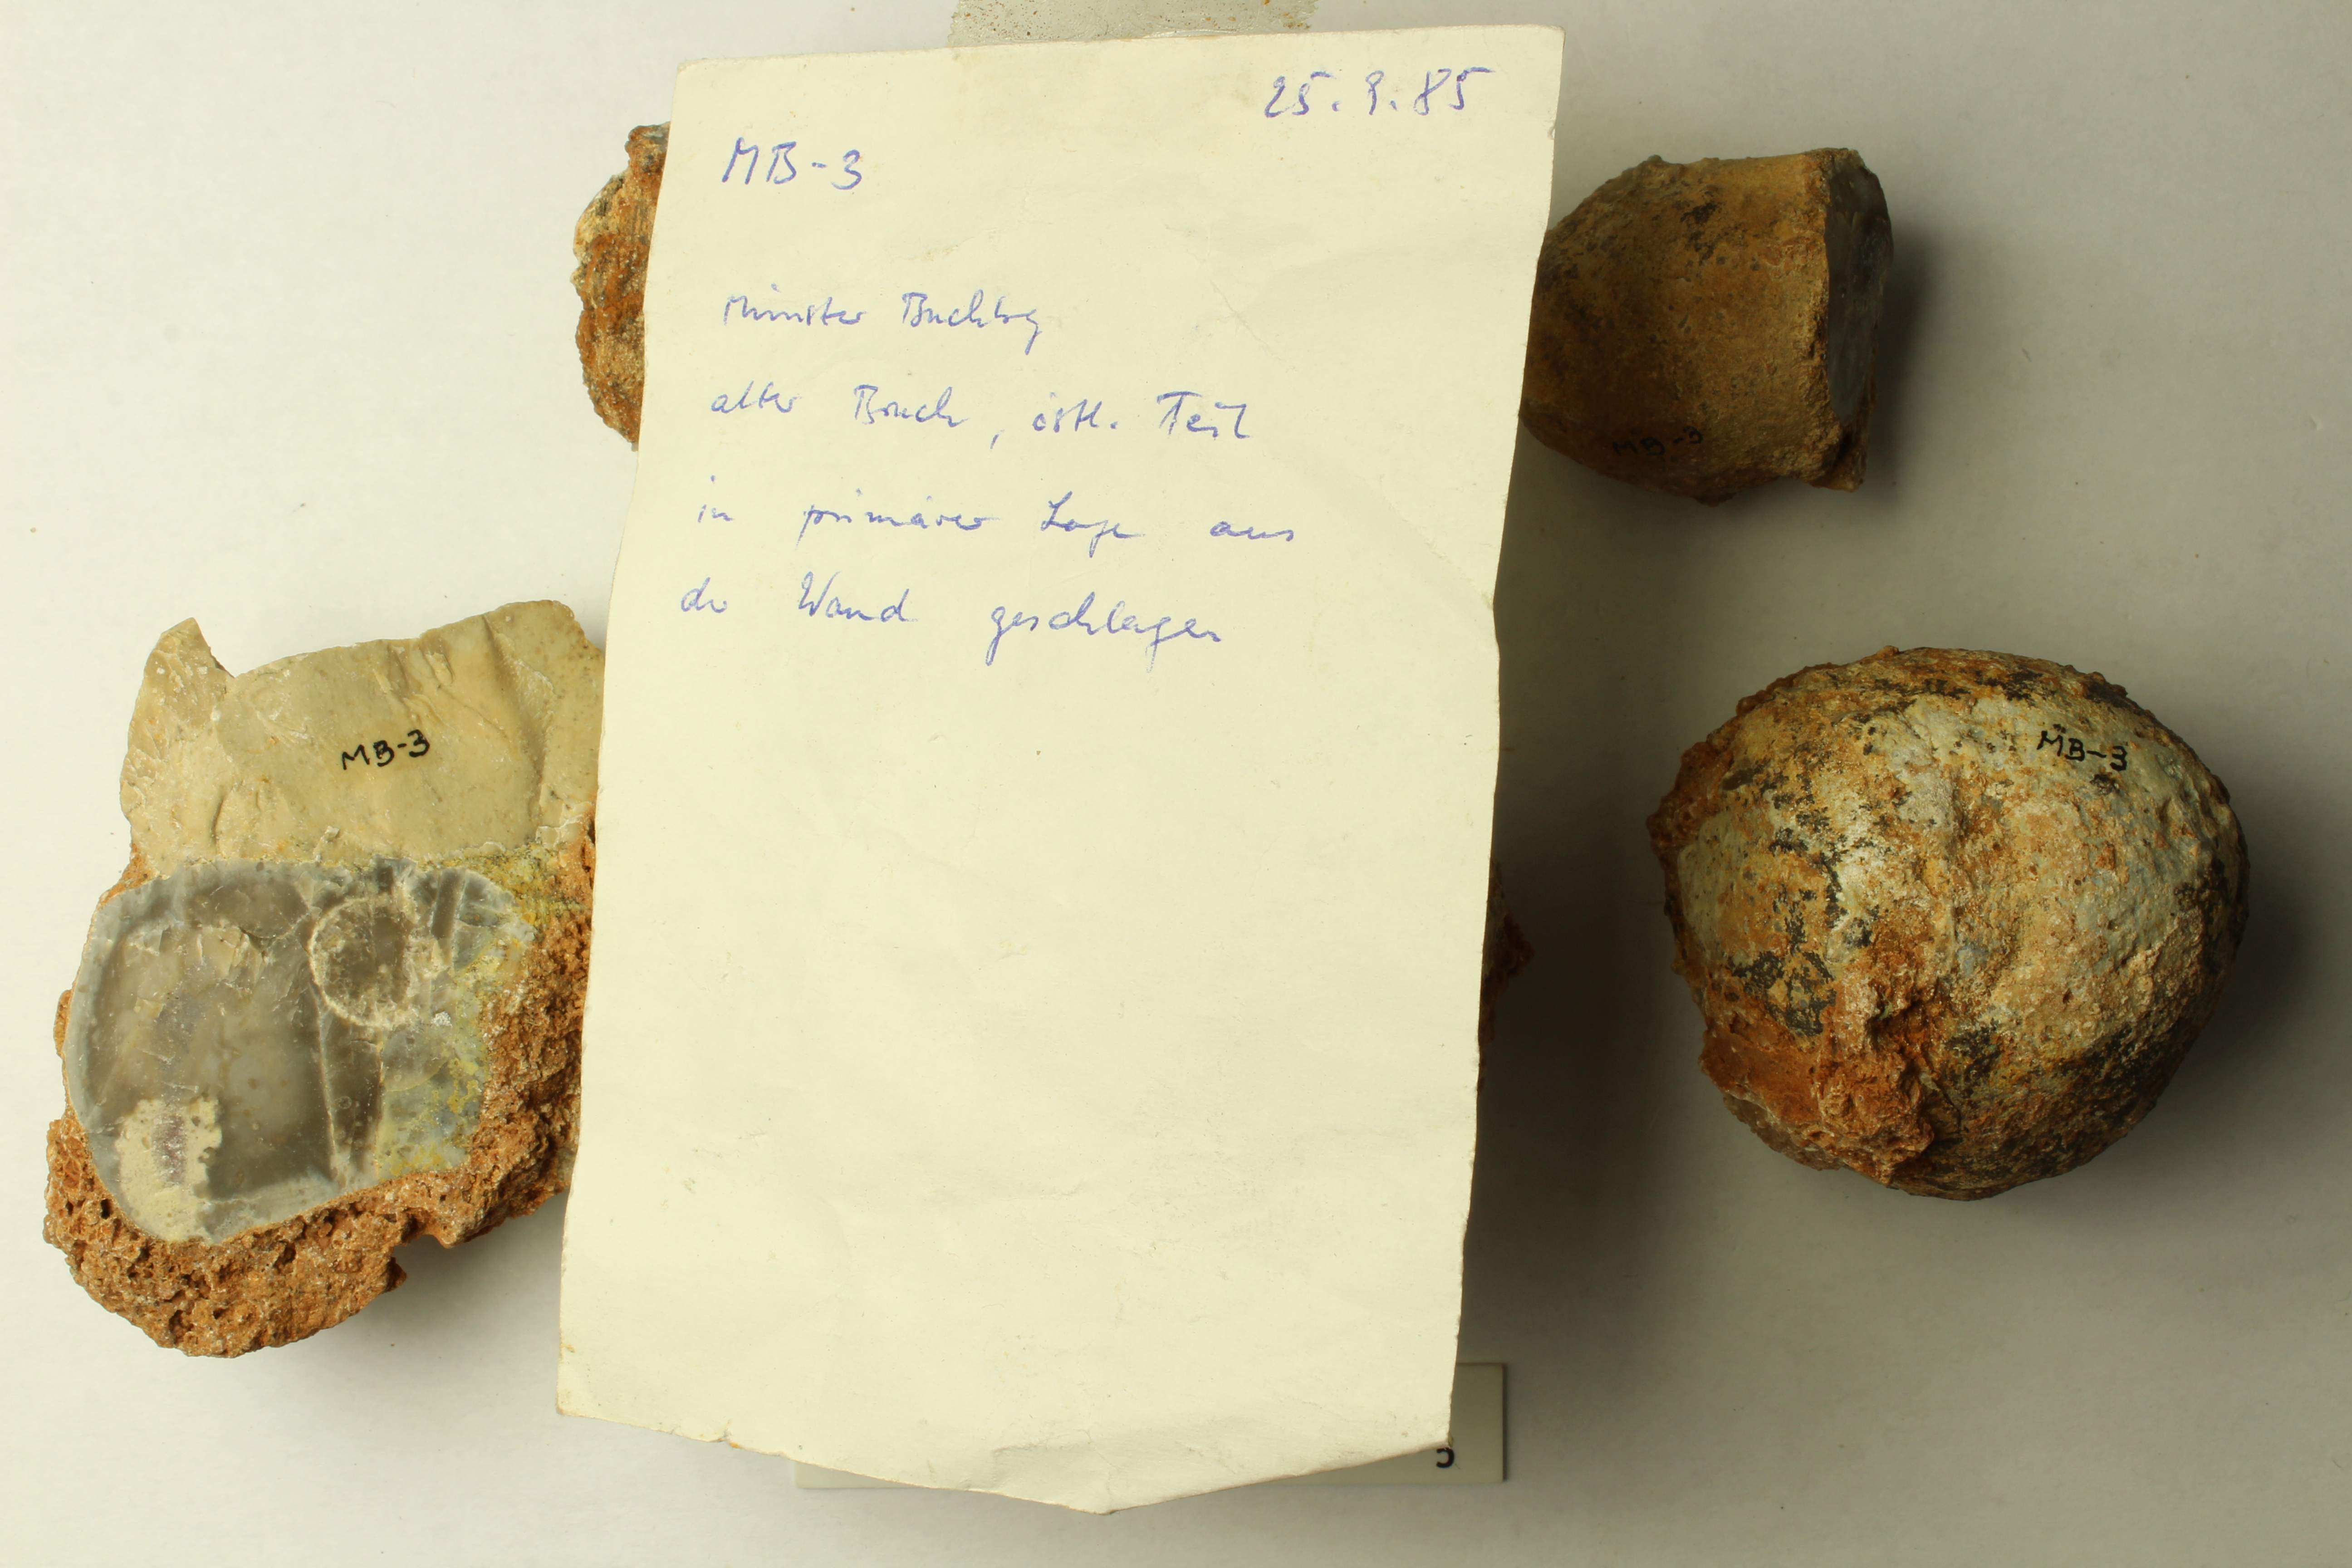 25.9.85
MB-3
Münster Buchbg
alter Bruch, östl. Teil
in primärer Lage aus
der Wand geschlagen
MB-3
MB-3
MB-3